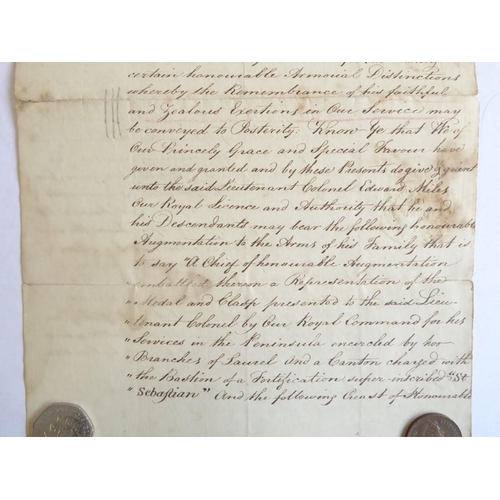 certain honourable Armorial Distinctions
whereby the Remembrance of his faithful
and Zealous Exertions in Our Service may
be conveyed to Posterity. Know Ye that We of
Our Princely Grace and Special Favour have
given and granted and by these Presents do give & grant
unto the said Lieutenant Colonel Edward Miles
Our Royal Licence and Authority that he and
his Descendants may bear the following honourable
Augmentation to the Arms of his Family that is
to say "A Chief of honourable Augmentation
embattled thereon a Representation of the
" Medal and Clasp presented to the said Lieu-
" tenant Colonel by Our Royal Command for his
" Services in the Peninsula encircled by two
" Branches of Laurel and a Canton charged with
" the Bastion of a Fortification super-inscribed "St
" Sebastian" And the following Crest of Honourable